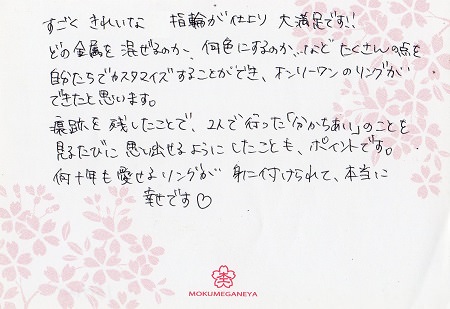 すごく きれいな 指輪が仕上り 大満足です!!
どの金属を混ぜるのか、何色にするのか、などたくさんの点を
自分たちでカスタマイズすることができ、オンリーワンのリングが
できたと思います。
痕跡を残したことで、2人で行った「分かちあい」のことを
見るたびに思い出せるようにしたことも、ポイントです。
何十年も愛せるリングが身に付けられて、本当に
幸せです♡
MOKUMEGANEYA